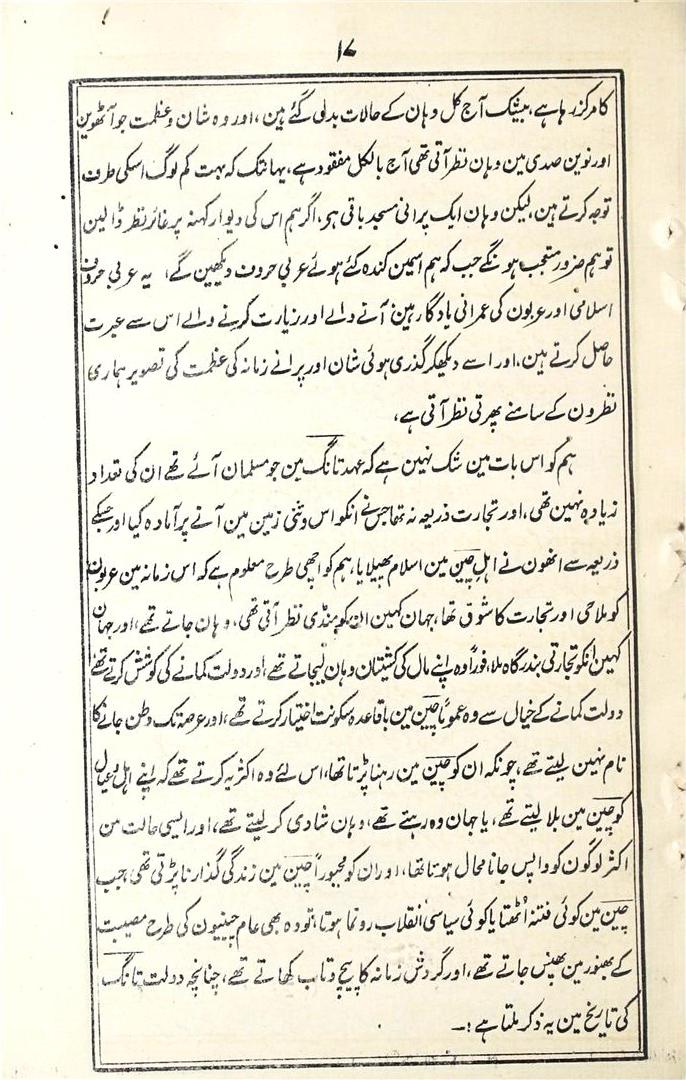 ۱۷
کا مرکز رہا ہے، بیشک آج کل وہان کے حالات بدل گئے ہین، اور وہ شان و عظمت جو آٹھوین
اور نوین صدی مین وہان نظر آتی تھی آج بالکل مفقود ہے، یہانتک کہ بہت کم لوگ اسکی طرف
توجہ کرتے ہین، لیکن وہان ایک پرانی مسجد باقی ہی، اگر ہم اس کی دیوار کہنہ پر غائر نظر ڈالین
تو ہم ضرور متعجب ہونگے جب کہ ہم اسمین کندہ کئے ہوئے عربی حروف دیکھین گے، یہ عربی حروف
اسلامی اور عربون کی عمرانی یادگار ہین، آنے والے اور زیارت کرنے والے اس سے عبرت
حاصل کرتے ہین، اور اسے دیکھکر گذری ہوئی شان اور پرانے زمانہ کی عظمت کی تصویر ہماری
نظرون کے سامنے پھرتی نظر آتی ہے،
ہم کو اس بات مین شک نہین ہے کہ عہد تانگ مین جو مسلمان آئے تھے ان کی تعداد
زیادہ نہین تھی، اور تجارت ذریعہ نہ تھا جس نے انکو اس وثنی زمین مین آنے پر آمادہ کیا اور جسکے
ذریعہ سے انھون نے اہل چین مین اسلام پھیلایا، ہم کو اچھی طرح معلوم ہے کہ اس زمانہ مین عربون
کو ملاحی اور تجارت کا شوق تھا، جہان کہین ان کو منڈی نظر آتی تھی، وہان جاتے تھے، اور جہان
کہین انکو تجارتی بندرگاہ ملا، فوراً وہ اپنے مال کی کشتیان وہان لیجاتے تھے، اور دولت کمانے کی کوشش کرتے تھے
دولت کمانے کے خیال سے وہ عموماً چین مین باقاعدہ سکونت اختیار کرتے تھے، اور عرصہ تک وطن جانے کا
نام نہین لیتے تھے، چونکہ ان کو چین مین رہنا پڑتا تھا، اس لئے وہ اکثر یہ کرتے تھے کہ اپنے اہل و عیال
کو چین مین بلا لیتے تھے، یا جہان وہ رہتے تھے، وہان شادی کر لیتے تھے، اور ایسی حالت مین
اکثر لوگون کو واپس جانا محال ہوتا تھا، اور ان کو مجبوراً چین مین زندگی گذارنا پڑتی تھی، جب
چین مین کوئی فتنہ اُٹھتا یا کوئی سیاسی انقلاب رونما ہوتا، تو وہ بھی عام چینیون کی طرح مصیبت
کے بھنور مین پھنس جاتے تھے، اور گردش زمانہ کا پیچ و تاب کھاتے تھے، چنانچہ دولت تانگ
کی تاریخ مین یہ ذکر ملتا ہے :۔